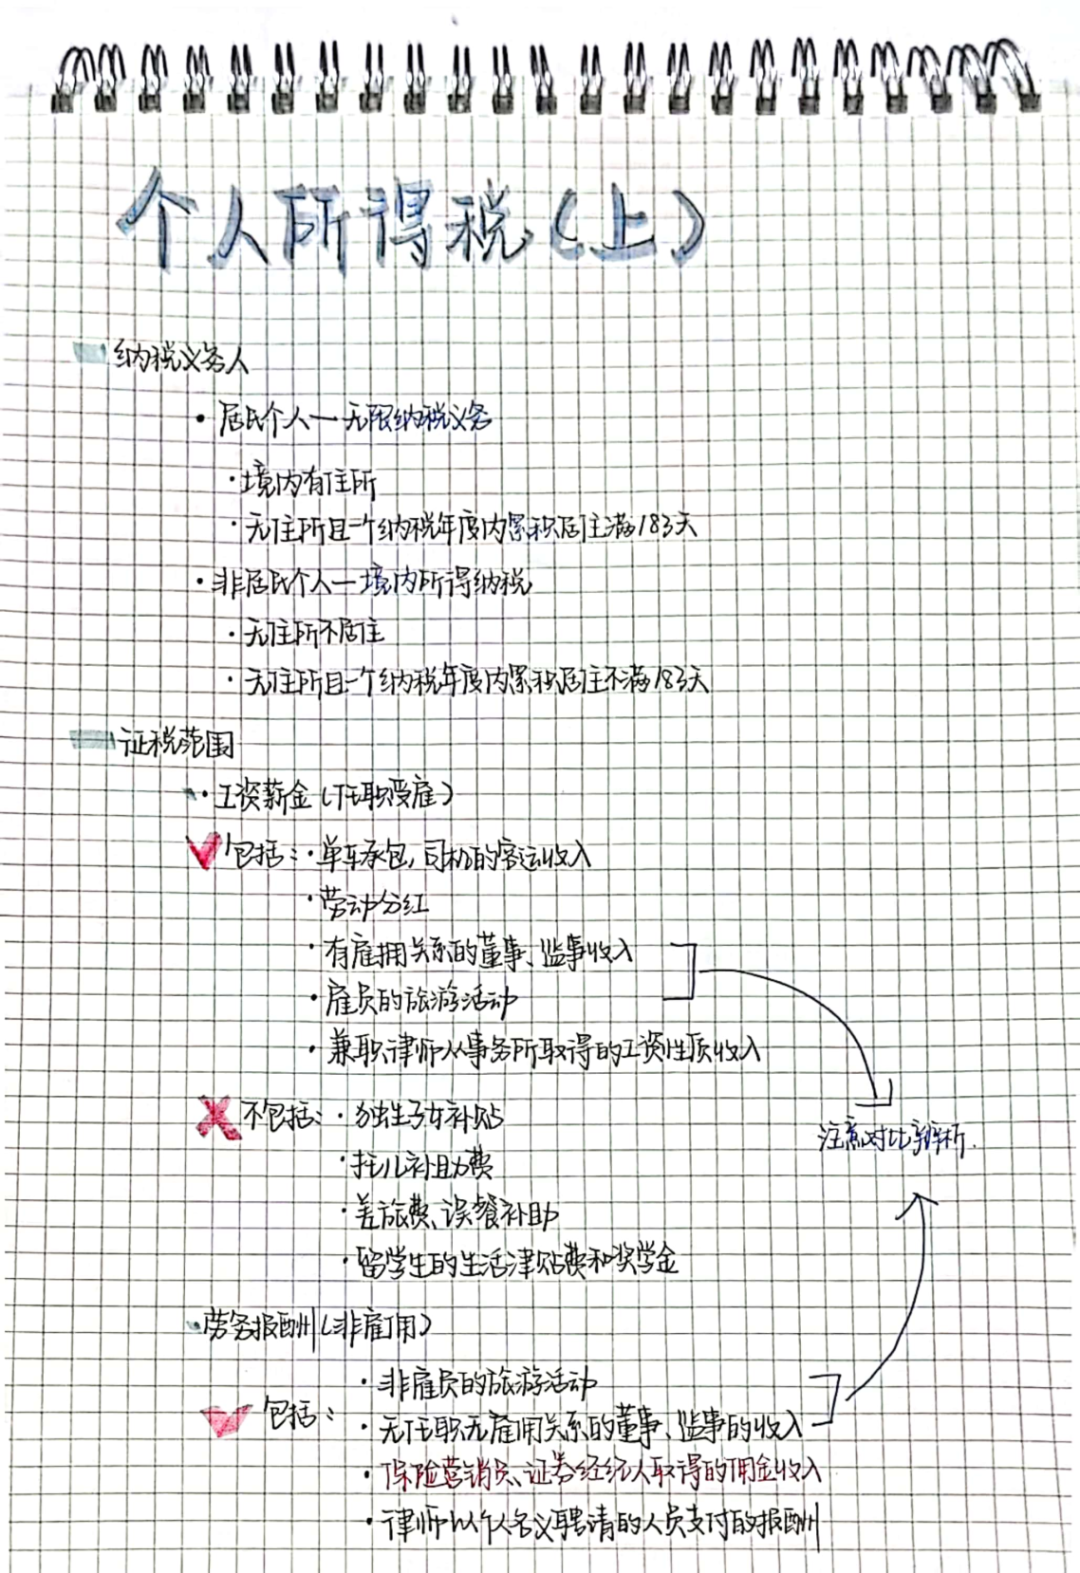 个人所得税(上)
纳税义务人
·居民个人—无限纳税义务
·境内有住所
·无住所且一个纳税年度内累积居住满183天
·非居民个人—境内所得纳税
·无住所不居住
·无住所且一个纳税年度内累积居住不满183天
征税范围
·工资薪金(任职受雇)
包括:·单车承包,司机的客运收入
·劳动分红
·有雇佣关系的董事、监事收入
·雇员的旅游活动
·兼职律师从事务所取得的工资性质收入
不包括:·独生子女补贴
·托儿补助费
·差旅费、误餐补助
·留学生的生活津贴费和奖学金
注意对比辨析.
·劳务报酬(非雇用)
·非雇员的旅游活动
包括:
·无任职无雇佣关系的董事、监事的收入
·保险营销员、证券经纪人取得的佣金收入
·律师以个人名义聘请的人员支付的报酬